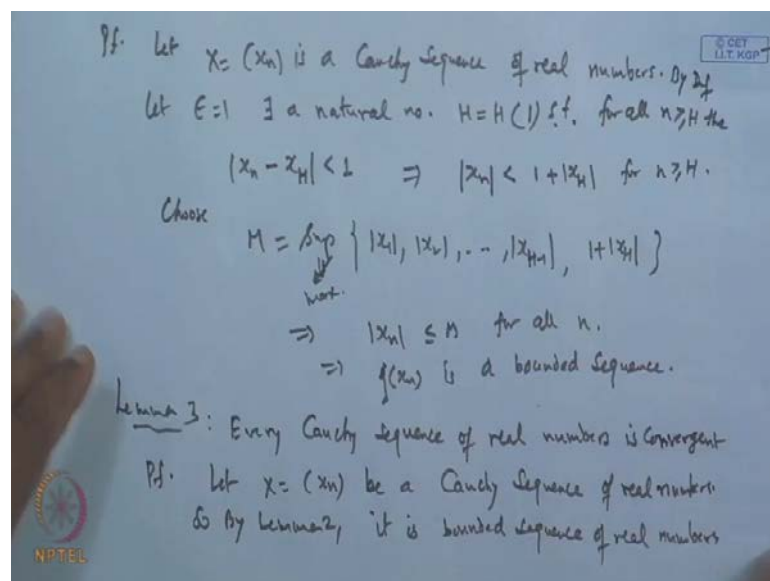 © CET
I.I.T. KGP
Pf. Let X = (xn) is a Cauchy Sequence of real numbers. By Def
Let ε=1 ∃ a natural no. H = H(1) s.t. for all n ≥ H the
|xn - xH| < 1 ⇒ |xn| < 1 + |xH| for n ≥ H.
Choose
M = Sup { |x1|, |x2|, . . , |xH-1|, 1+|xH| }
max.
⇒ |xn| ≤ M for all n.
⇒ (xn) is a bounded sequence.
Lemma 3 : Every Cauchy Sequence of real numbers is Convergent
Pf. Let X = (xn) be a Cauchy Sequence of real numbers.
So By Lemma 2, it is bounded sequence of real numbers
NPTEL